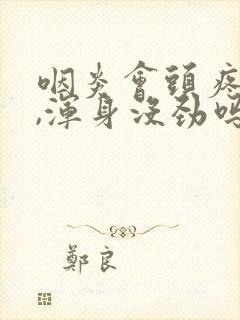 咽炎會頭疼
,渾身沒勁嗎
鄭良